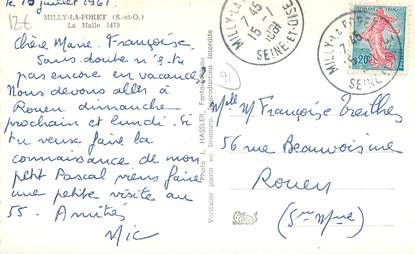 le 15 juillet 1961.
MILLY-LA-FORET (S.-et-O.)
La Halle 1479
12€
Chère Marie-Françoise
Sans doute n'es-tu
pas encore en vacances?
Nous devons aller à
Rouen dimanche
prochain et lundi. Si
tu veux faire la
connaissance de mon
petit Pascal viens faire
une petite visite au
55. Amitiés
Mic
Photo J. HASSLER,
Véritable photo au bromure. Reproduction interdite
91
MILLY-LA-FORET
7H45
15-1
1961
SEINE-ET-OISE
MILLY-LA-FORET
7H45
SEINE-ET
0,20
Mlle M. Françoise
56 rue Beauvoisine
Rouen
(Sne Mme)